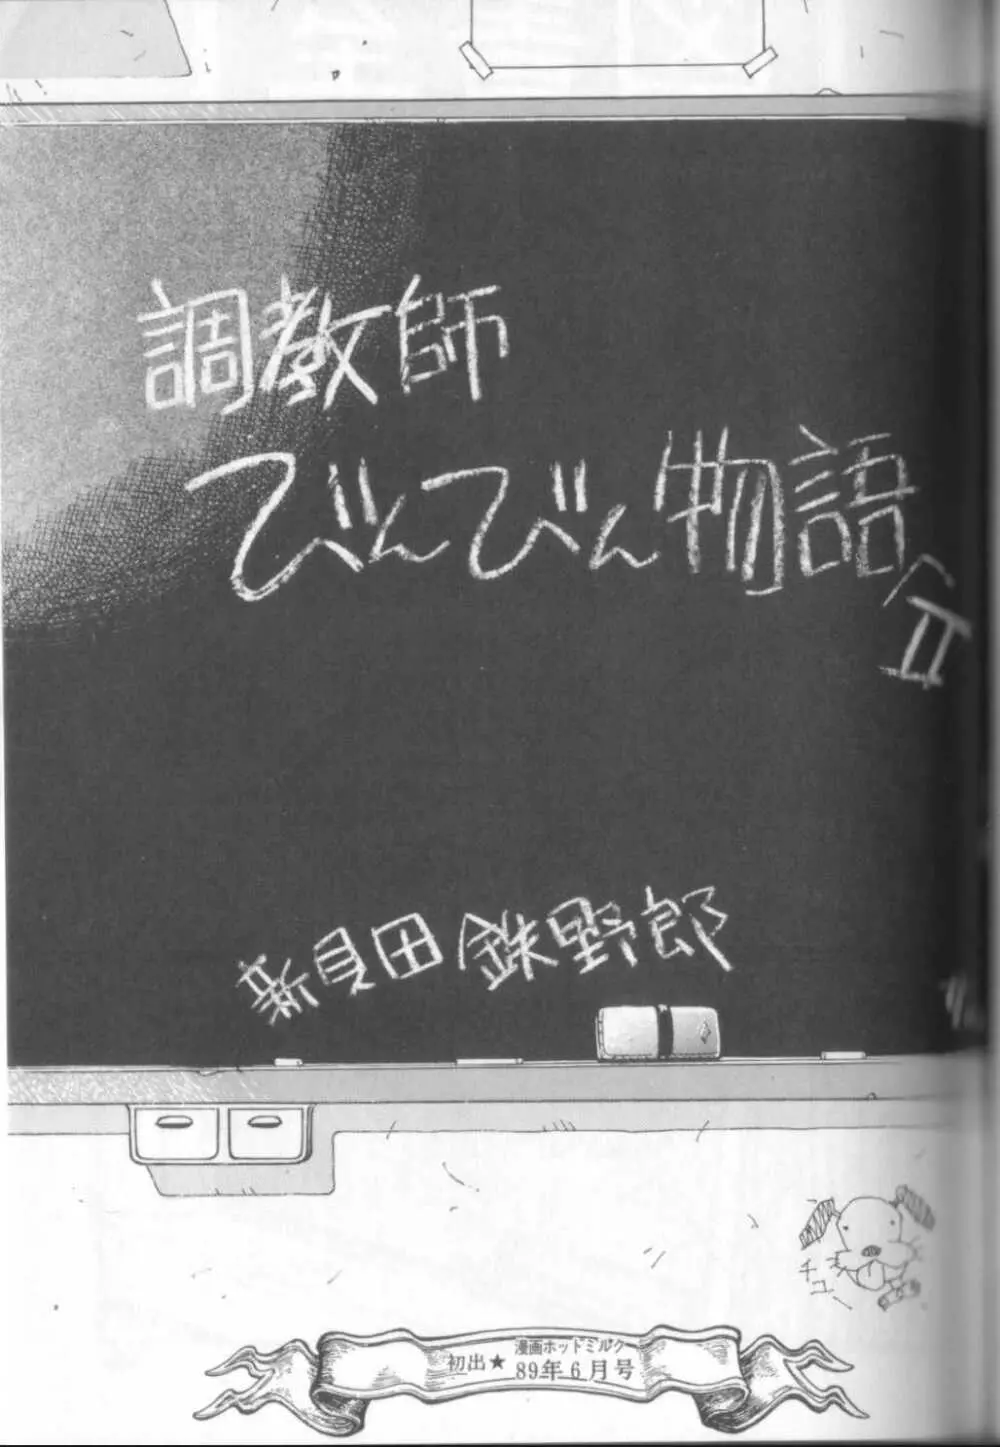 調教師
びんびん物語
II
新貝田鉄野郎
チュー
初出★漫画ホットミルク
89年6月号